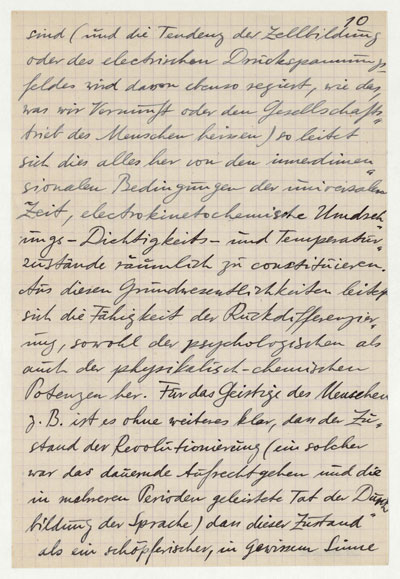 10
sind (und die Tendenz der Zellbildung
oder des electrischen Druckspannungs-
feldes wird davon ebenso regiert, wie das,
was wir Vernunft oder den Gesellschafts„
trieb des Menschen heissen) so leitet
sich dies alles her von den innerdimen„
sionalen Bedingungen der universalen
Zeit, electrokinetochemische Umdreh„
ungs- Dichtigkeits- und Temperatur„
zustände räumlich zu constituieren.
Aus diesen Grundwesentlichkeiten leitet
sich die Fähigkeit der Rückdifferenzier„
ung, sowohl der psychologischen als
auch der physikalisch-chemischen
Potenzen her. Für das Geistige des Menschen
z. B. ist es ohne weiteres klar, dass der Zu„
stand der Revolutionierung (ein solcher
war das dauernde Aufrechtgehen und die
in mehreren Perioden geleistete Tat der Durch
bildung der Sprache) dass dieser Zustand
als ein schöpferischer, in gewissem Sinne